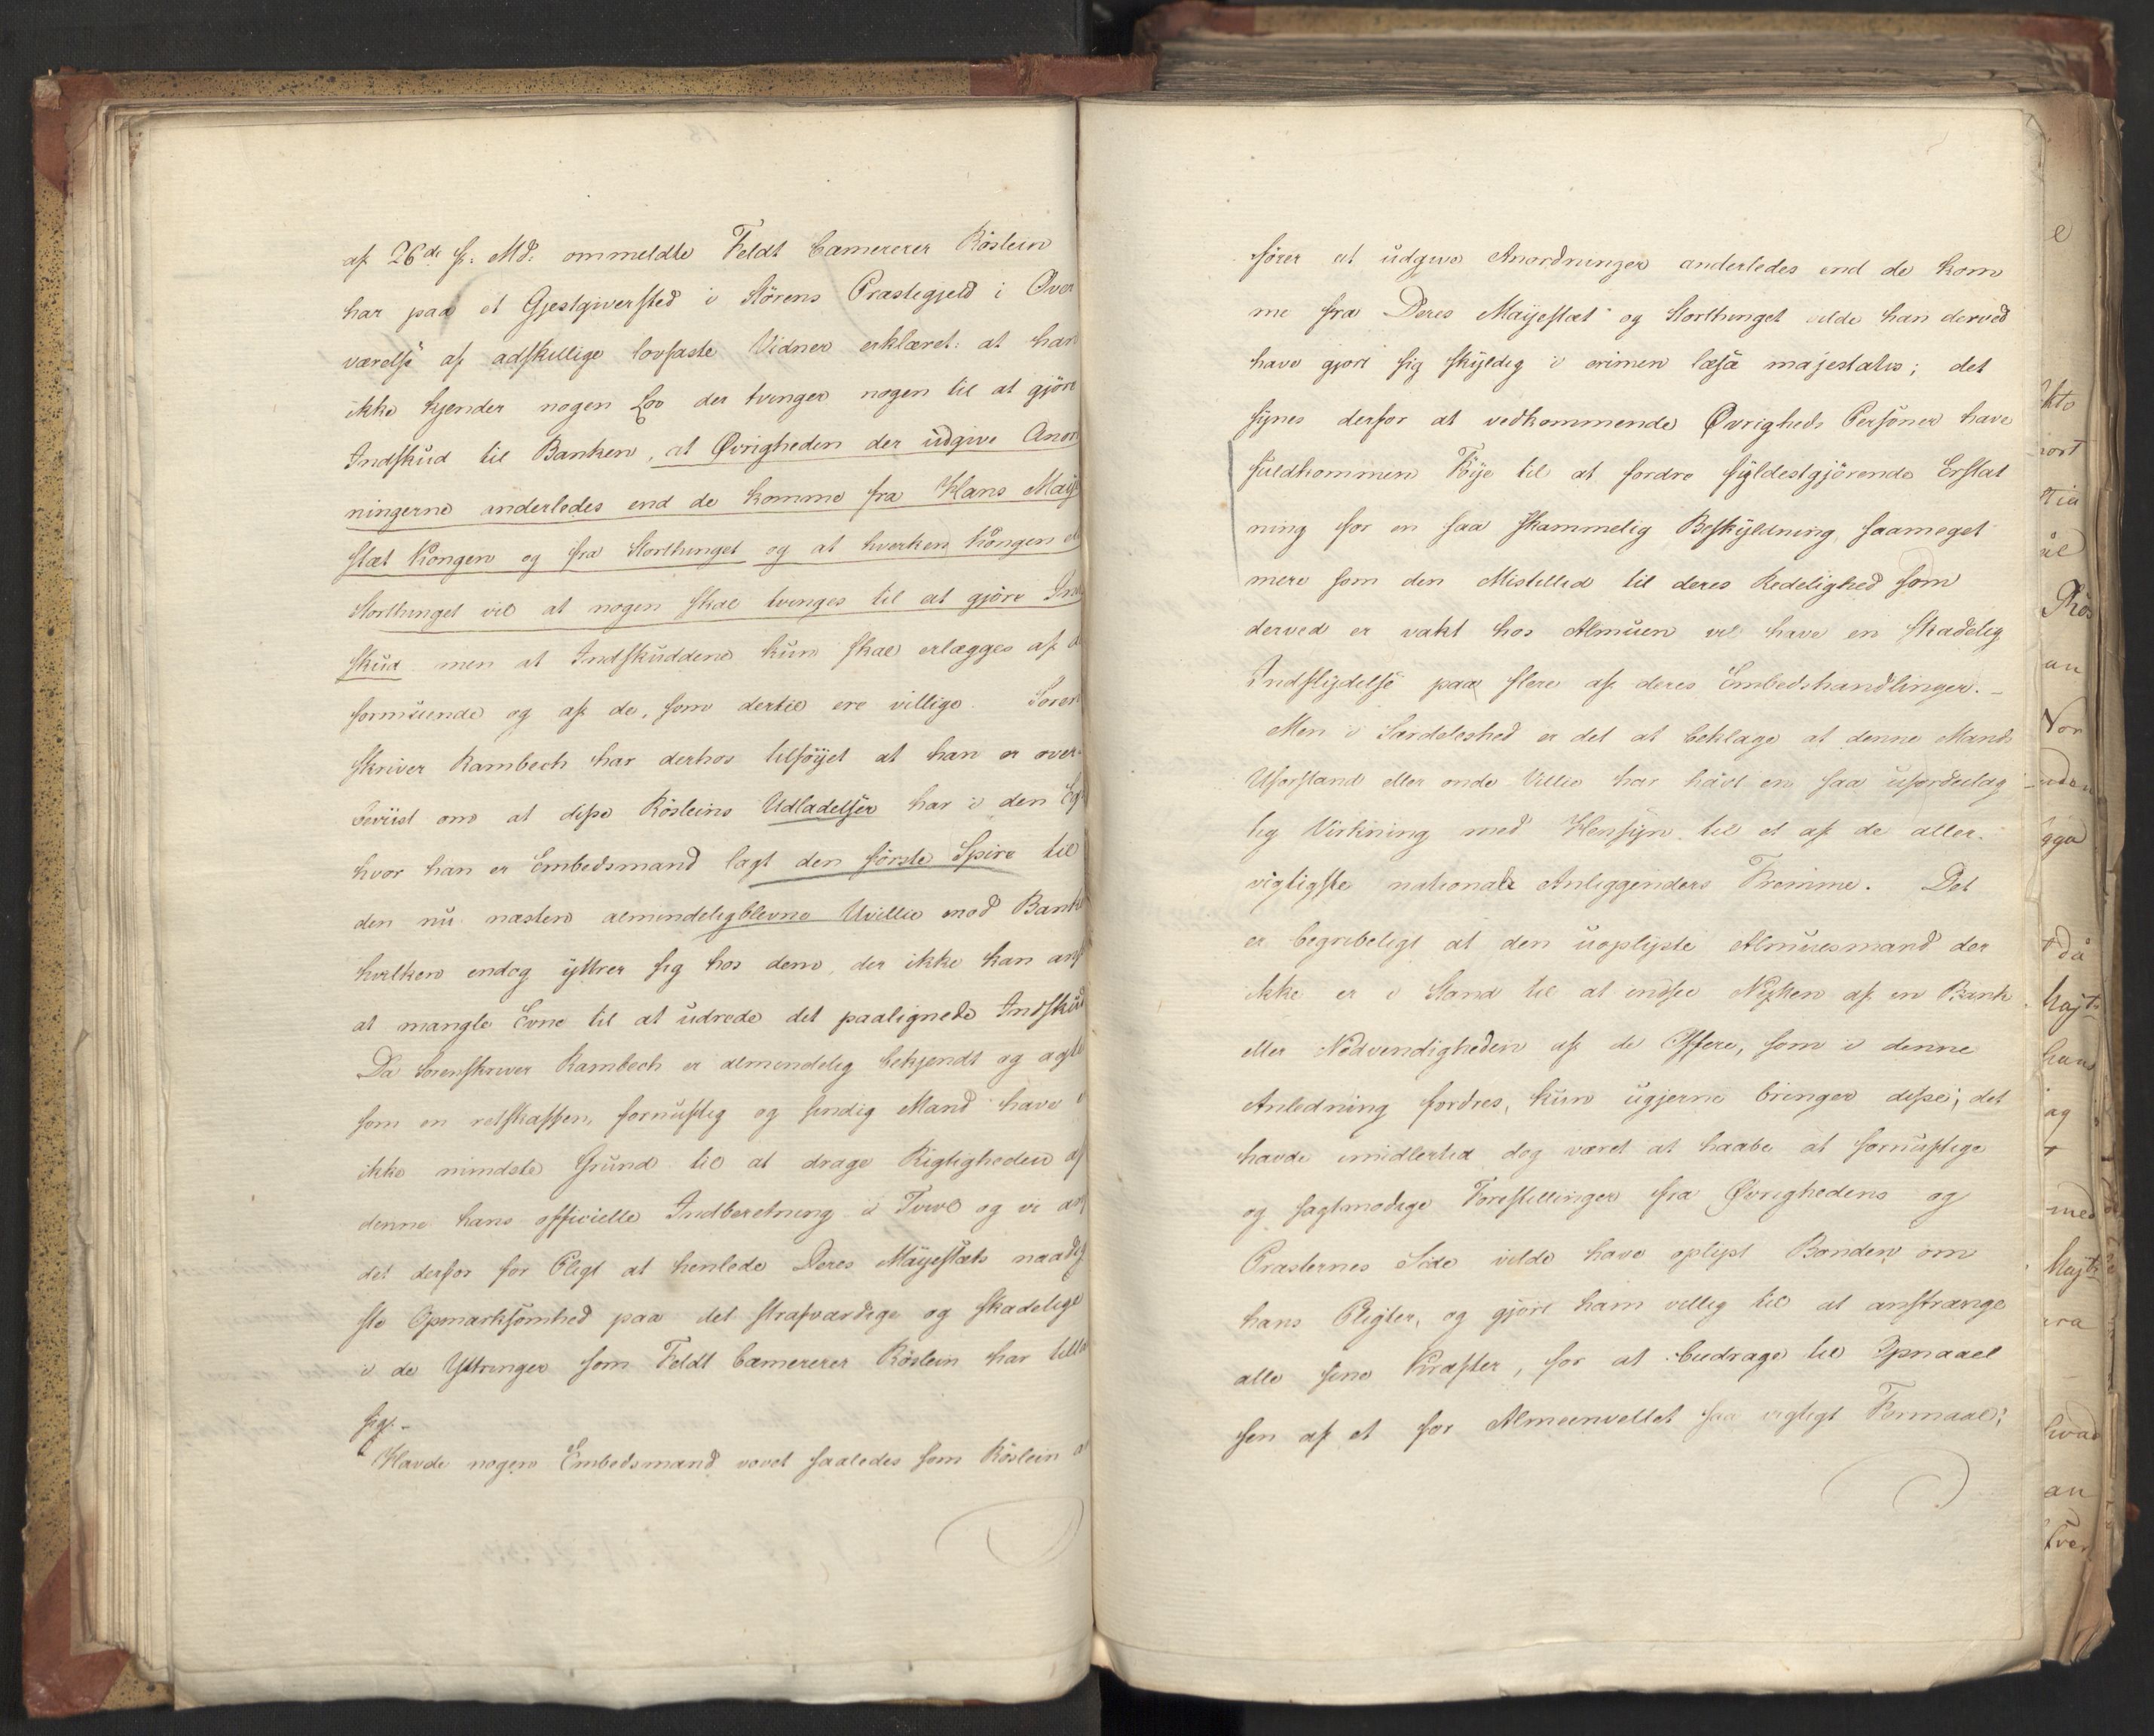 af 26de f. Md: ommeldte Feldt Camererer Röslein
har paa et Gjestgiversted i Störens Præstegjeld i Over
værelse af adskillige lovfaste Vidner erklæret: at han
ikke kjender nogen Lov der tvinger nogen til at gjöre
Indskud til Banken, at Øvrigheden der udgive Anord
ningerne anderledes end de komme fra Hans Maje
stæt Kongen og fra Storthinget og at hverken Kongen el
Storthinget vil at nogen skal tvinges til at gjöre Ind
skud men at Indskuddene kun skal erlægges af d
formuende og af de, som dertil ere villige. Soren
skriver Rambech har derhos tilföyet at han er over-
beviist om at disse Rösleins Udladelser har i den Eg
hvor han er Embedsmand lagt den förste Spire til
den nu næsten almindeligblevne Uvillie mod Banke
hvilken endog yttrer sig hos dem, der ikke kan ans
at mangle Evne til at udrede det paalignede Indskud
Da Sorenskriver Rambech er almindelig bekjendt og agte
som en retskaffen, fornuftig og sindig Mand have v
ikke mindste Grund til at drage Rigtigheden af
denne hans officielle Indberetning i Tvivl og vi ans
det derfor for Pligt at henlede Deres Majestæts naadig
ste Opmærksomhed paa det strafværdige og skadelige
i de Yttringer som Feldt Camererer Röslein har tilla
sig.-
Havde nogen Embedsmand vovet saaledes som Röslein a
förer at udgive Anordninger anderledes end de kom
me fra Deres Majestæt og Storthinget vilde han derved
have gjort sig skyldig i crimen læsæ majestatis; det
synes derfor at vedkommende Øvrigheds Personer have
fuldkommen Föye til at fordre fyldestgjörende Erstat
ning for en saa skammelig Beskyldning, saameget
mere som den Mistillid til deres Redelighed som
derved er vakt hos Almuen vil have en skadelig
Indflydelse paa flere af deres Embedshandlinger.-
Men i Særdeleshed er det at beklage at denne Mands
Uforstand eller onde Villie har havt en saa ufordeelag
tig Virkning med Hensyn til et af de aller-
vigtigste nationale Anliggenders Fremme. Det
er begribeligt at den uoplyste Almuesmand der
ikke er i Stand til at indsee Nytten af en Bank
eller Nödvendigheden af de Offere, som i denne
Anledning fordres, kun ugjerne bringer disse; det
havde imidlertid dog været at haabe at fornuftige
og sagtmodige Forestillinger fra Øvrighedens og
Præsternes Side vilde have oplyst Bonden om
hans Pligter, og gjort ham villig til at anstrænge
alle sine Kræfter, for at bidrage til Opnaael
sen af et for Almeenvellet saa vigtigt Formaal;